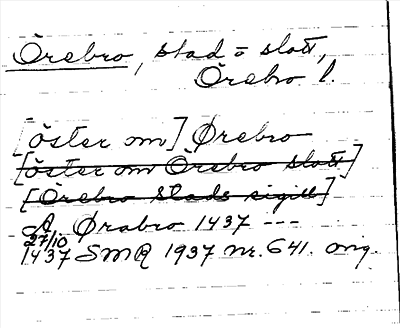 Örebro, stad o slott,
Örebro l.
[öster om] Ørebro
[öster om Örebro slott]
[Örebro Stads sigill]
A. Ørabro 1437 ---
27/10
1437 SMR 1937 nr. 641. orig.